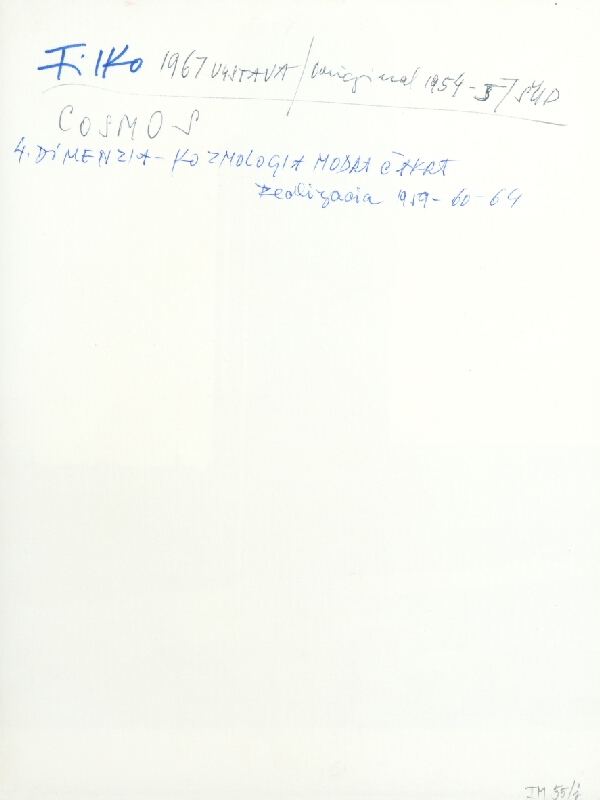 FilKo 1967 VÝSTAVA / original 1954-5 /
COSMOS
4. DIMENZIA - KOZMOLOGIA MODRÁ ČAKRA
Realizacia 1959-60-64
IM 55/